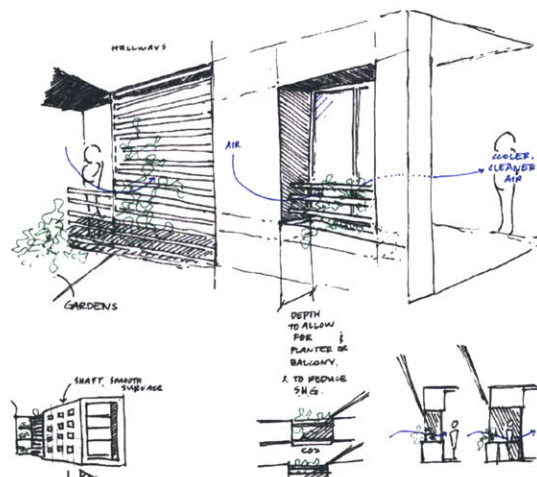 HALLWAYS
AIR
COOLER,
CLEANER
AIR
GARDENS
DEPTH
TO ALLOW
FOR &
PLANTER OR
BALCONY.
& TO REDUCE
S.H.G.
SHAFT, SMOOTH
SURFACE